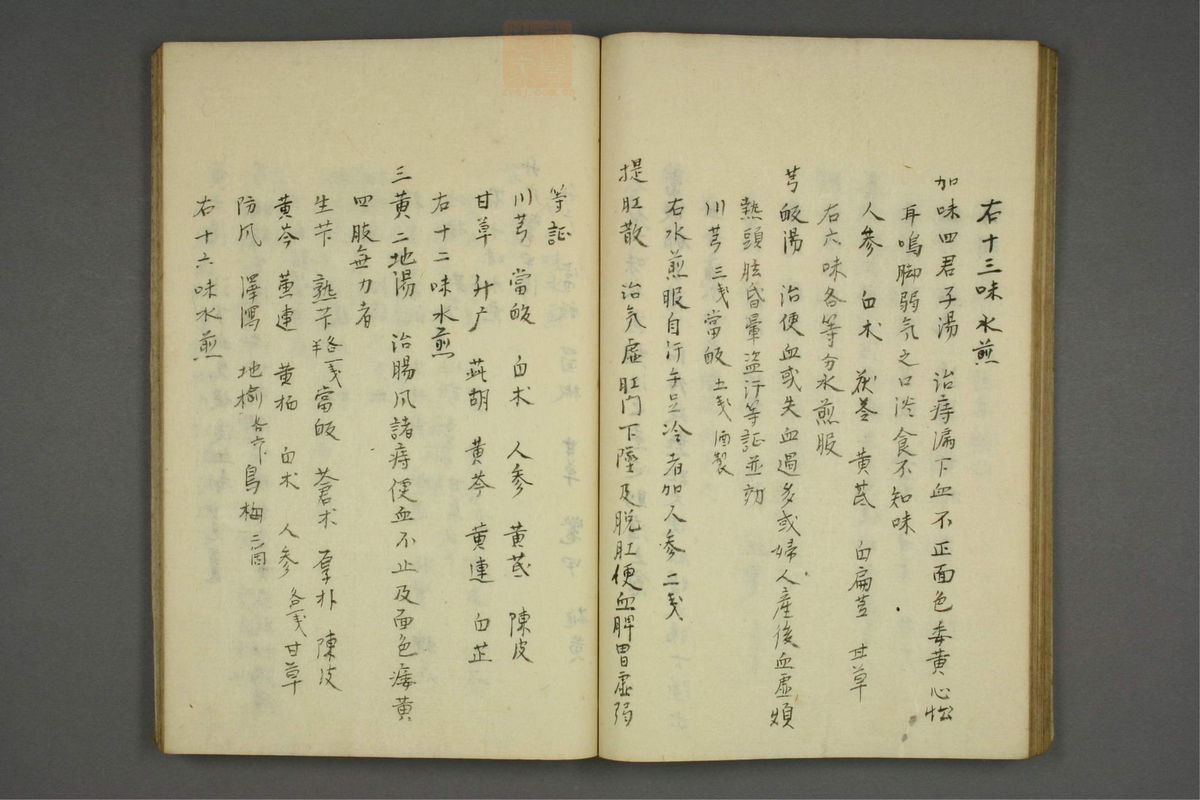 右十三味水煎
加味四君子湯 治痔漏下血不正面色委黄心忪
耳鳴脚弱気乏口淡食不知味
人參 白术 茯苓 黄茋 白扁荳 甘草
右六味各等分水煎服
芎皈湯 治便血或失血過多或婦人産後血虚煩
熱頭眩昏暈盗汗等証並効
川芎三戋當皈土戋酒製
右水煎服自汗手足冷者加人參二戋
提肛散 治気虚肛門下墜及脱肛便血脾胃虚弱
等証
川芎 當皈 白术 人參 黄茋 陳皮
甘草 升广 茈胡 黄芩 黄連 白芷
右十二味水煎
三黄二地湯 治腸风諸痔便血不止及面色痿黄
四肢無力者
生苄 熟苄 各戋當皈 蒼术 厚朴 陳皮
黄芩 黄連 黄栢 白术 人參 各戋甘草
防风 澤瀉 地榆 各 烏梅二箇
右十六味水煎